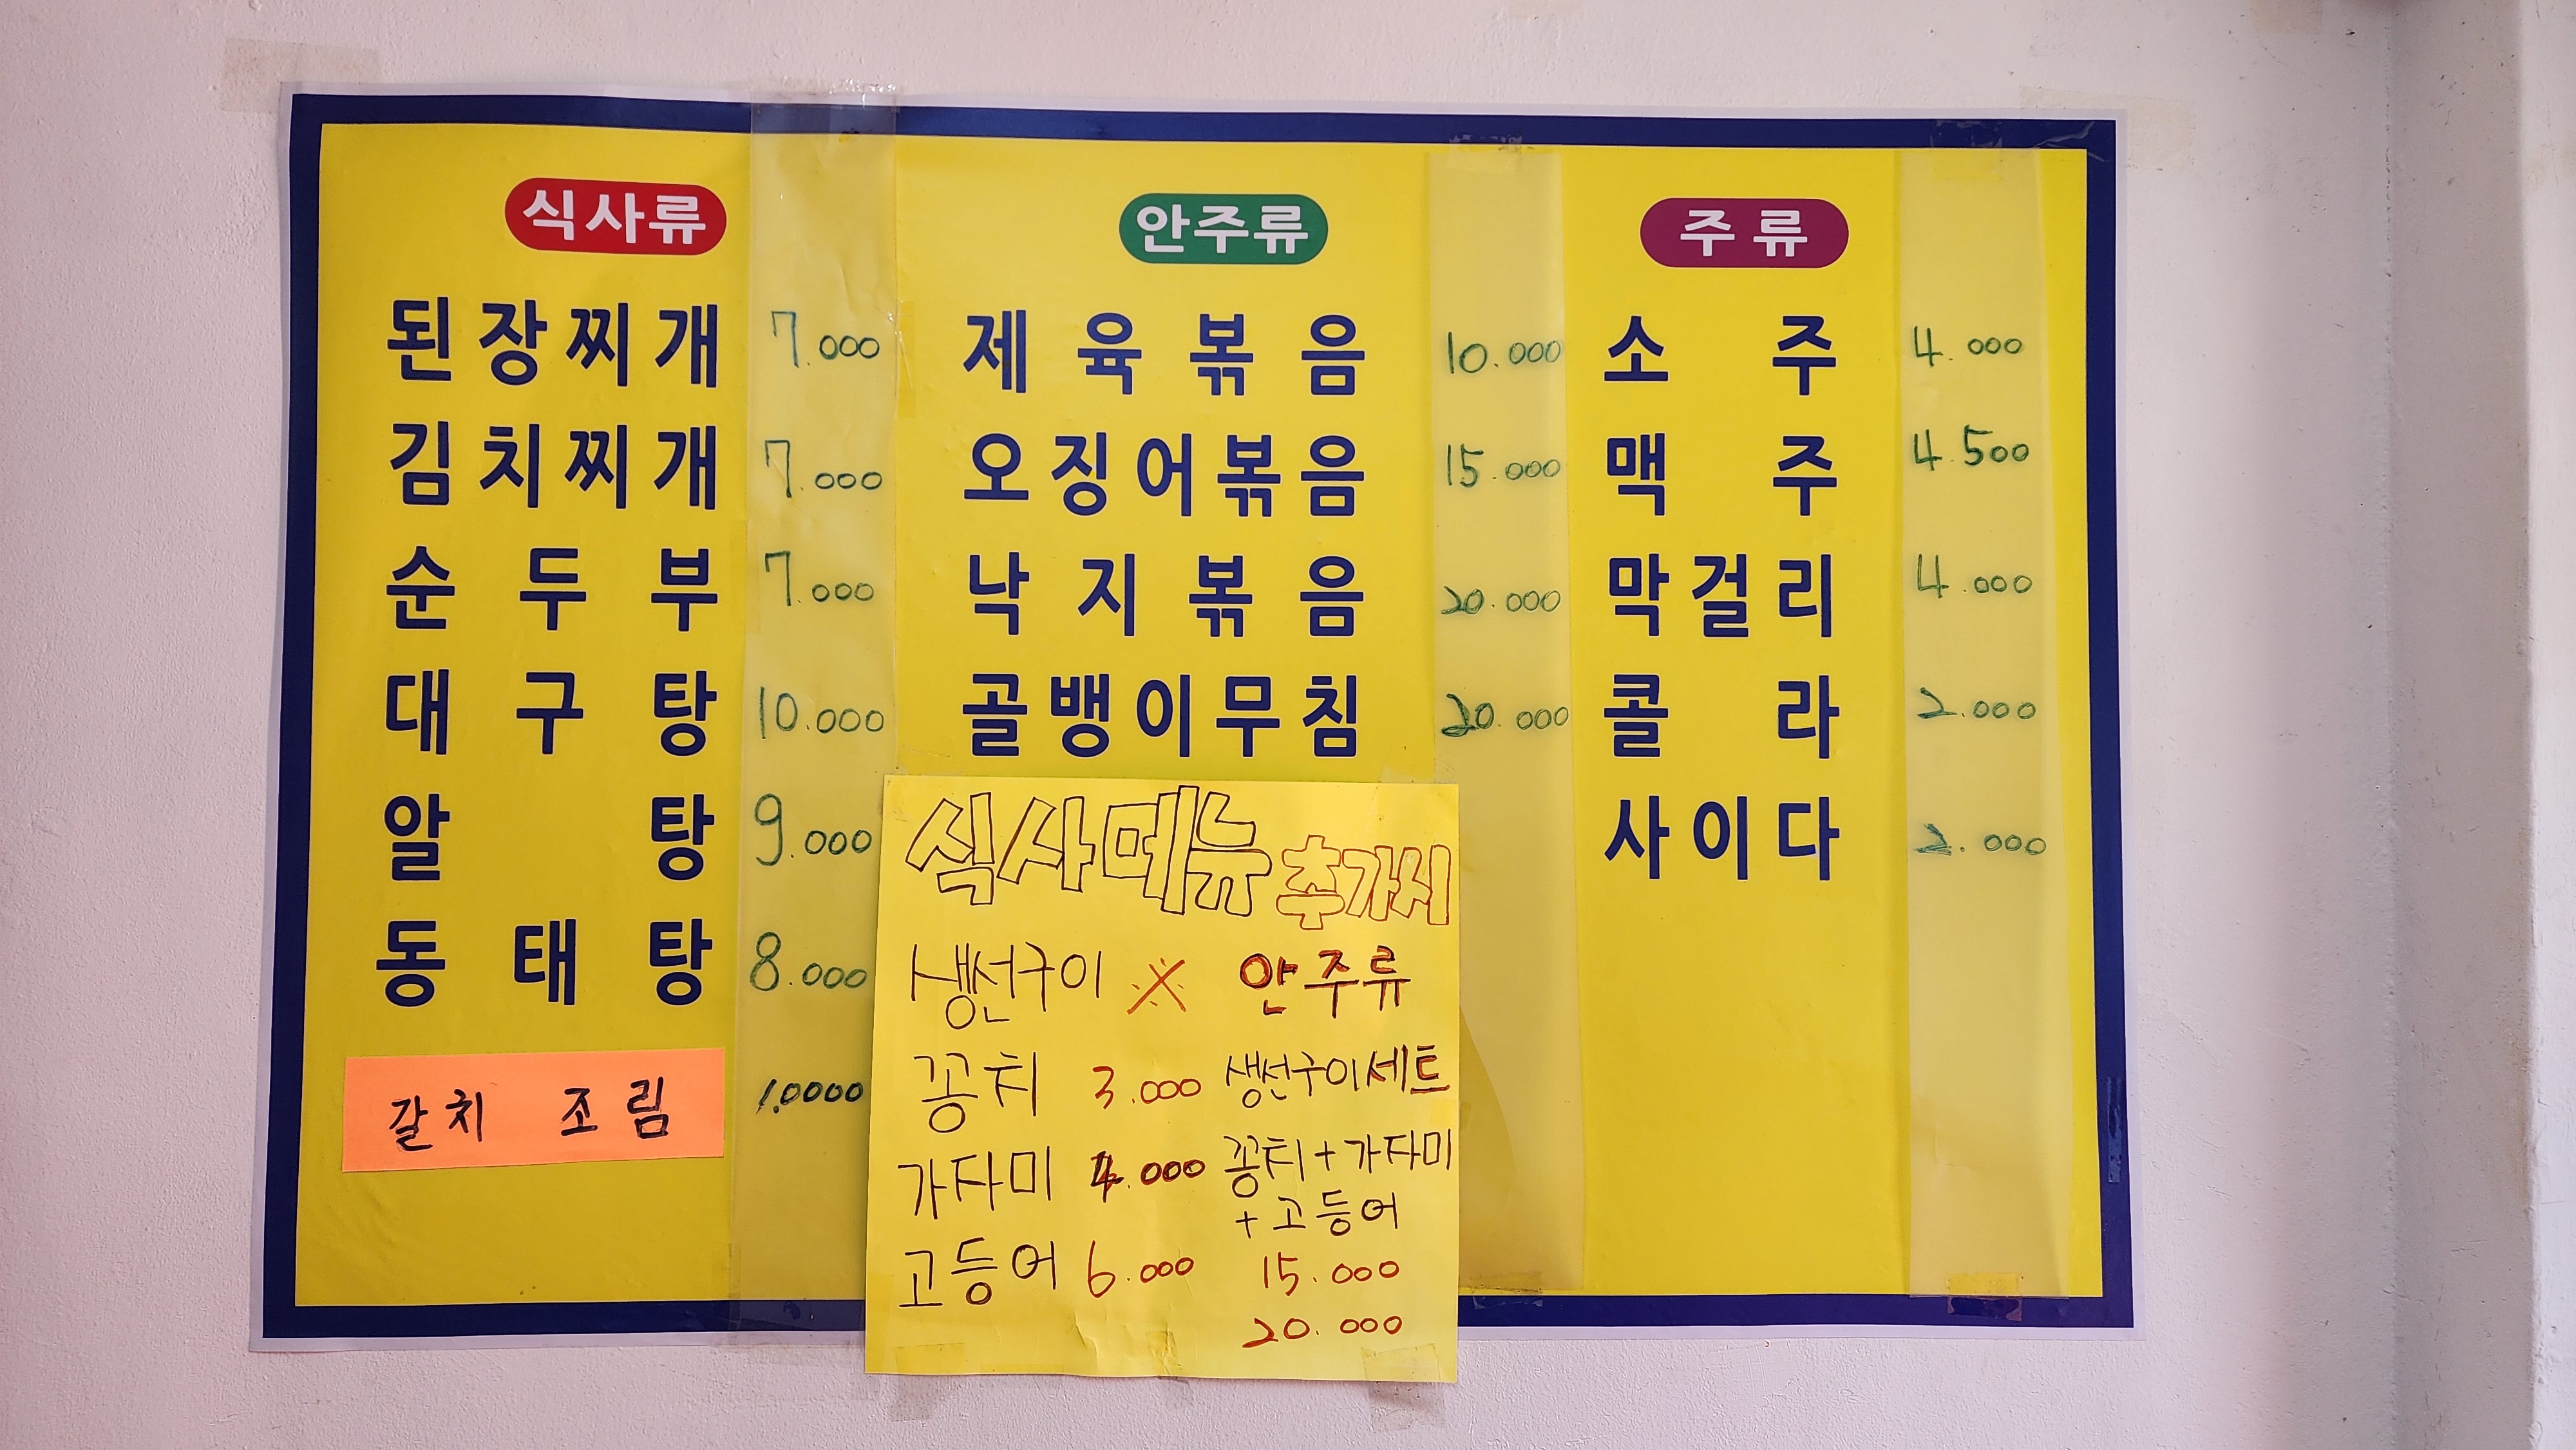 식사류
된장찌개 7.000
김치찌개 7.000
순두부 7.000
대구탕 10.000
알탕 9.000
동태탕 8.000
갈치 조림 1.0000
안주류
제육볶음 10.000
오징어볶음 15.000
낙지볶음 20.000
골뱅이무침 20.000
주류
소주 4.000
맥주 4.500
막걸리 4.000
콜라 2.000
사이다 2.000
식사메뉴 추가시
생선구이 ※
꽁치 3.000
가자미 4.000
고등어 6.000
안주류
생선구이세트
꽁치+가자미
+고등어
15.000
20.000